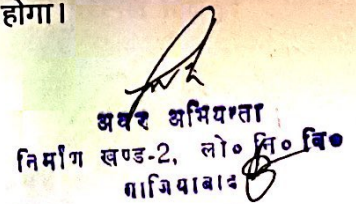 होगा।
अवर अभियन्ता
निर्माण खण्ड-2, लो० नि० वि०
गाजियाबाद